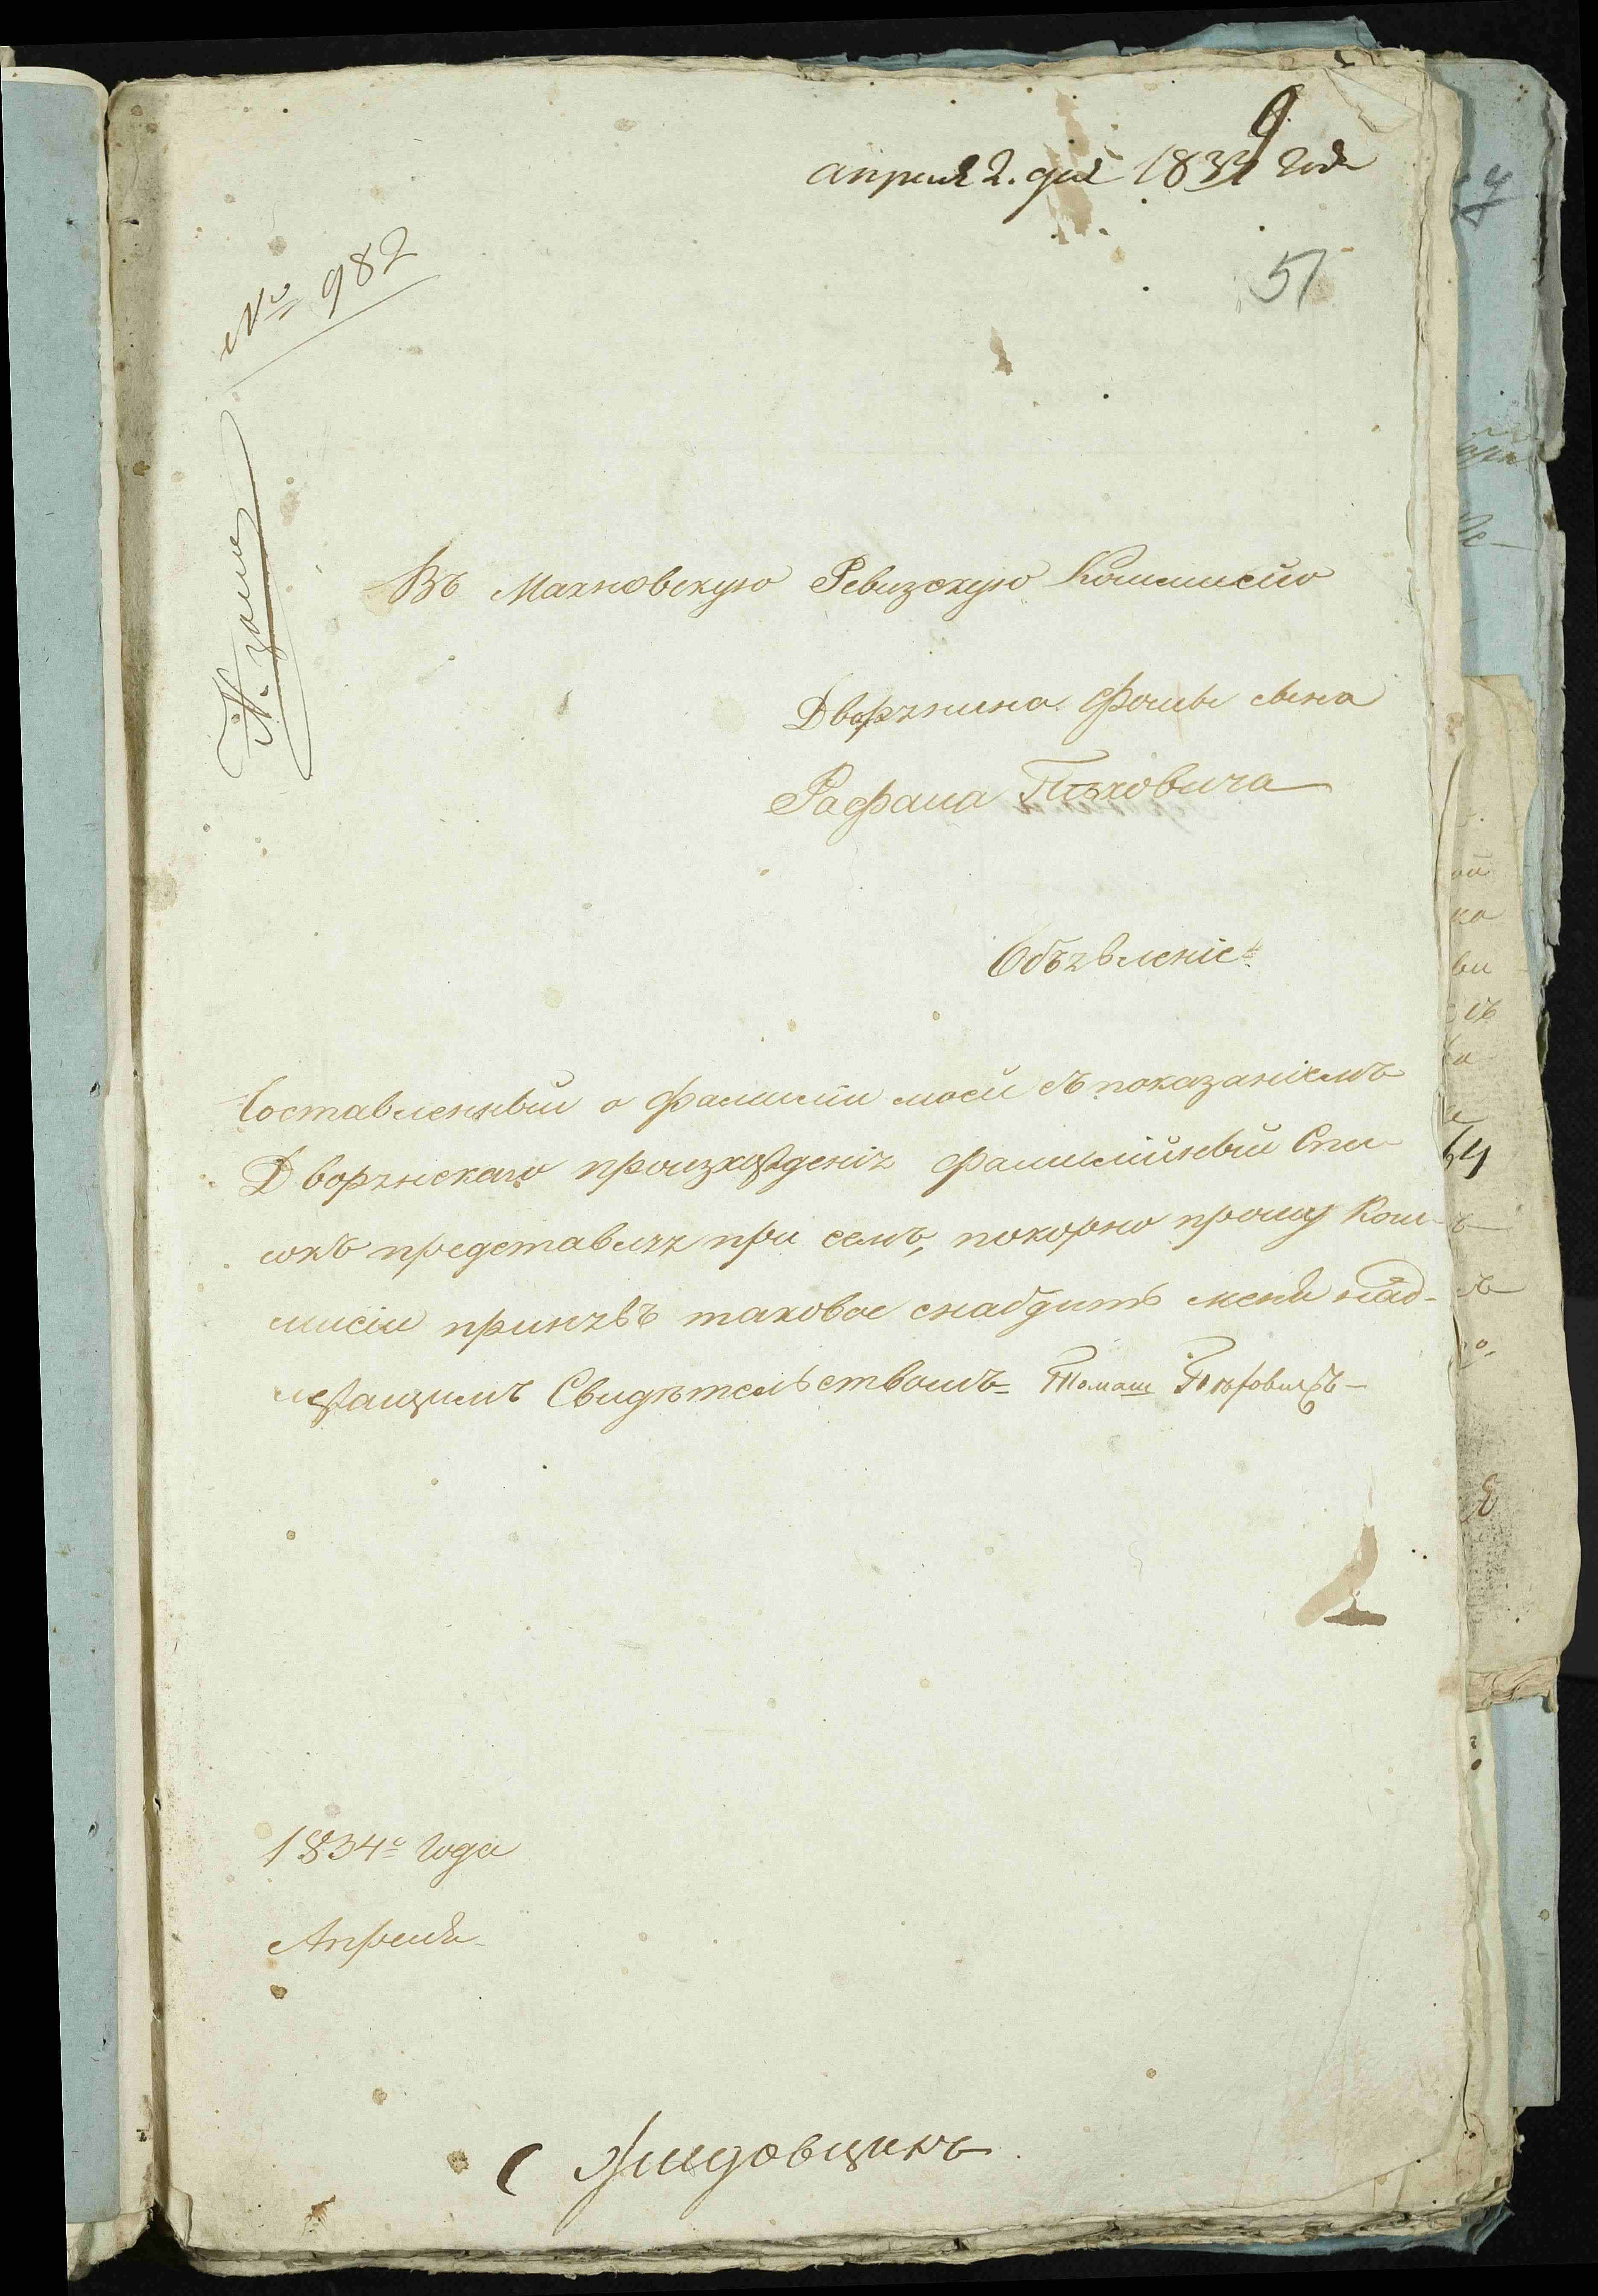 апреля 2. дня 1834 года
51
№ 982
Въ Махновскую Ревизскую Коммисію
Дворянина Фомы сына
Рафаила Пѣховича
Объявленіе
Составленный о фамиліи моей съ показаніемъ
Дворянскаго произхожденія фамилійный Спи-
сокъ представляя при семъ, покорно прошу Ком-
мисіи принявъ таковое снабдить меня над-
лежащимъ Свидѣтельствомъ Томашъ
1834го года
Апреля
с Жидовцикъ